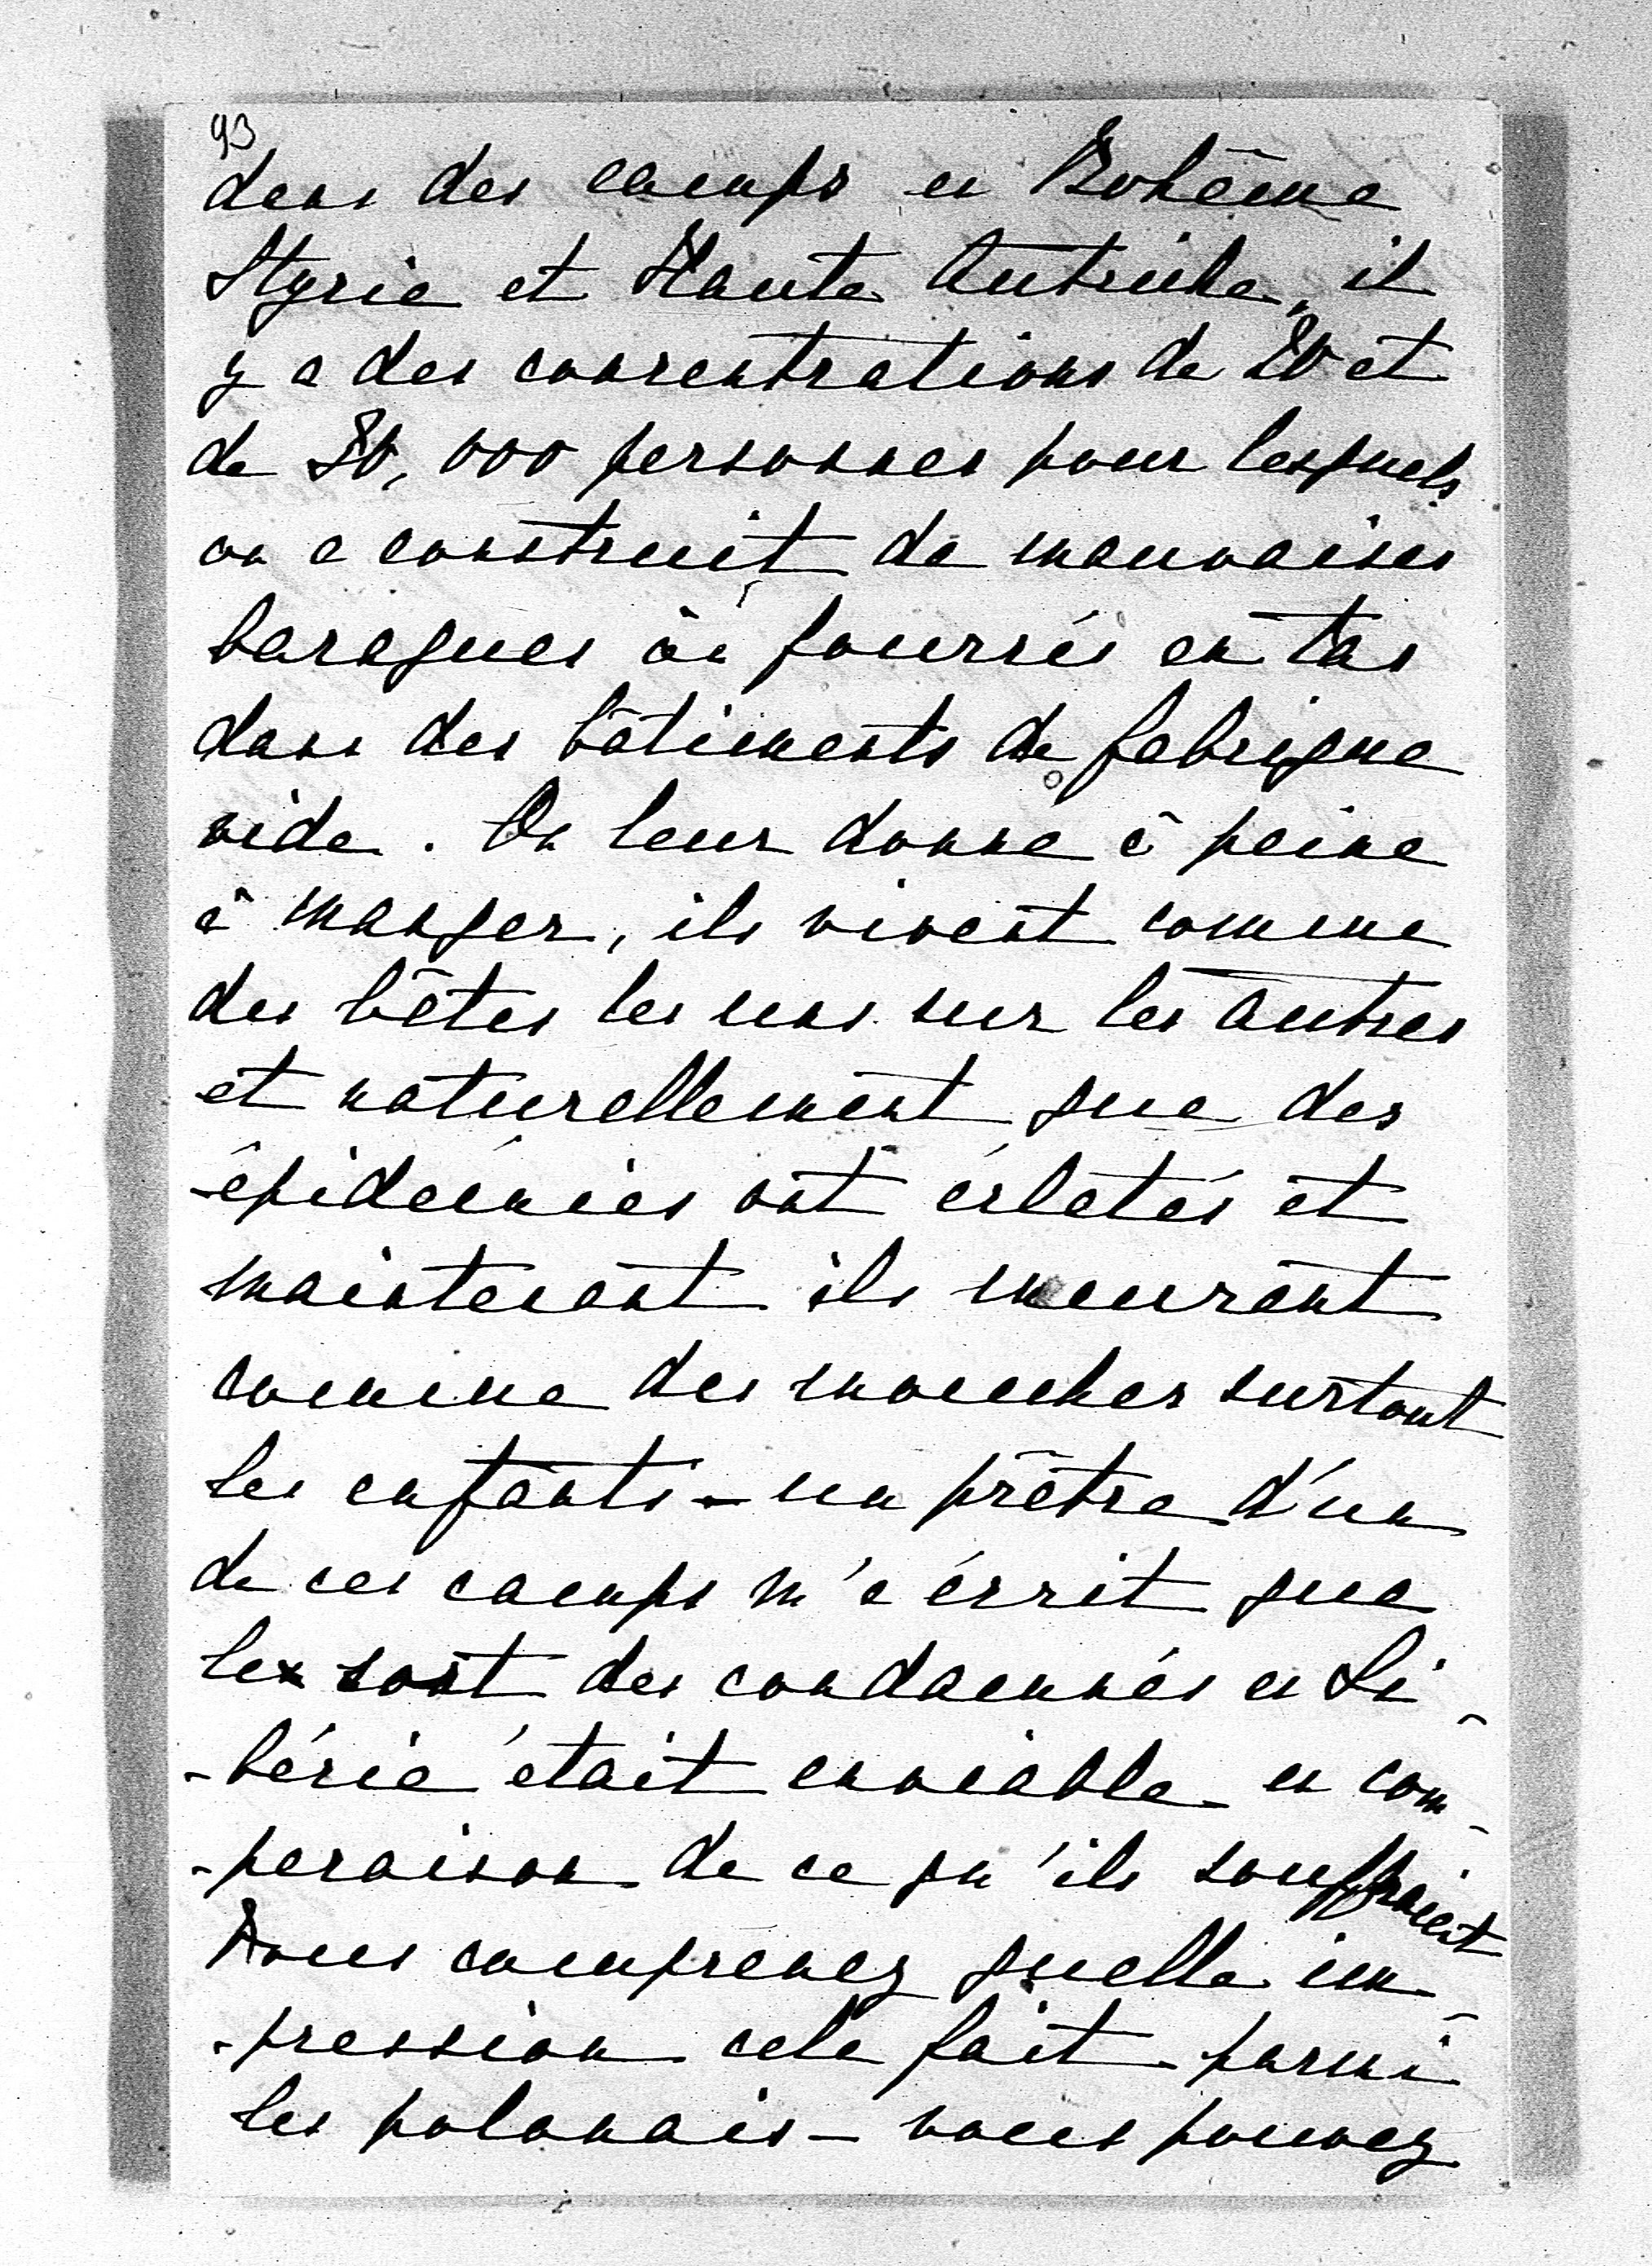 93
dans des camps en Bohême
Styrie et Haute Autriche, il
y a des concentrations de 20 et
de 30,000 personnes pour lesquels
on a construit de mauvaises
baraques où fourrés en tas
dans des bâtiments de fabrique
vide. On leur donne à peine
à manger, ils vivent comme
des bêtes les uns sur les autres
et naturellement que des
épidémies ont éclatés et
maintenant ils meurent
comme des mouches surtout
les enfants – un prêtre d'un
de ces camps m'a écrit que
le sort des condamnés en Si-
-bérie était enviable en com-
-paraison de ce qu'ils souffraient
Vous comprenez quelle im-
-pression cela fait parmi
les polonais – vous pouvez